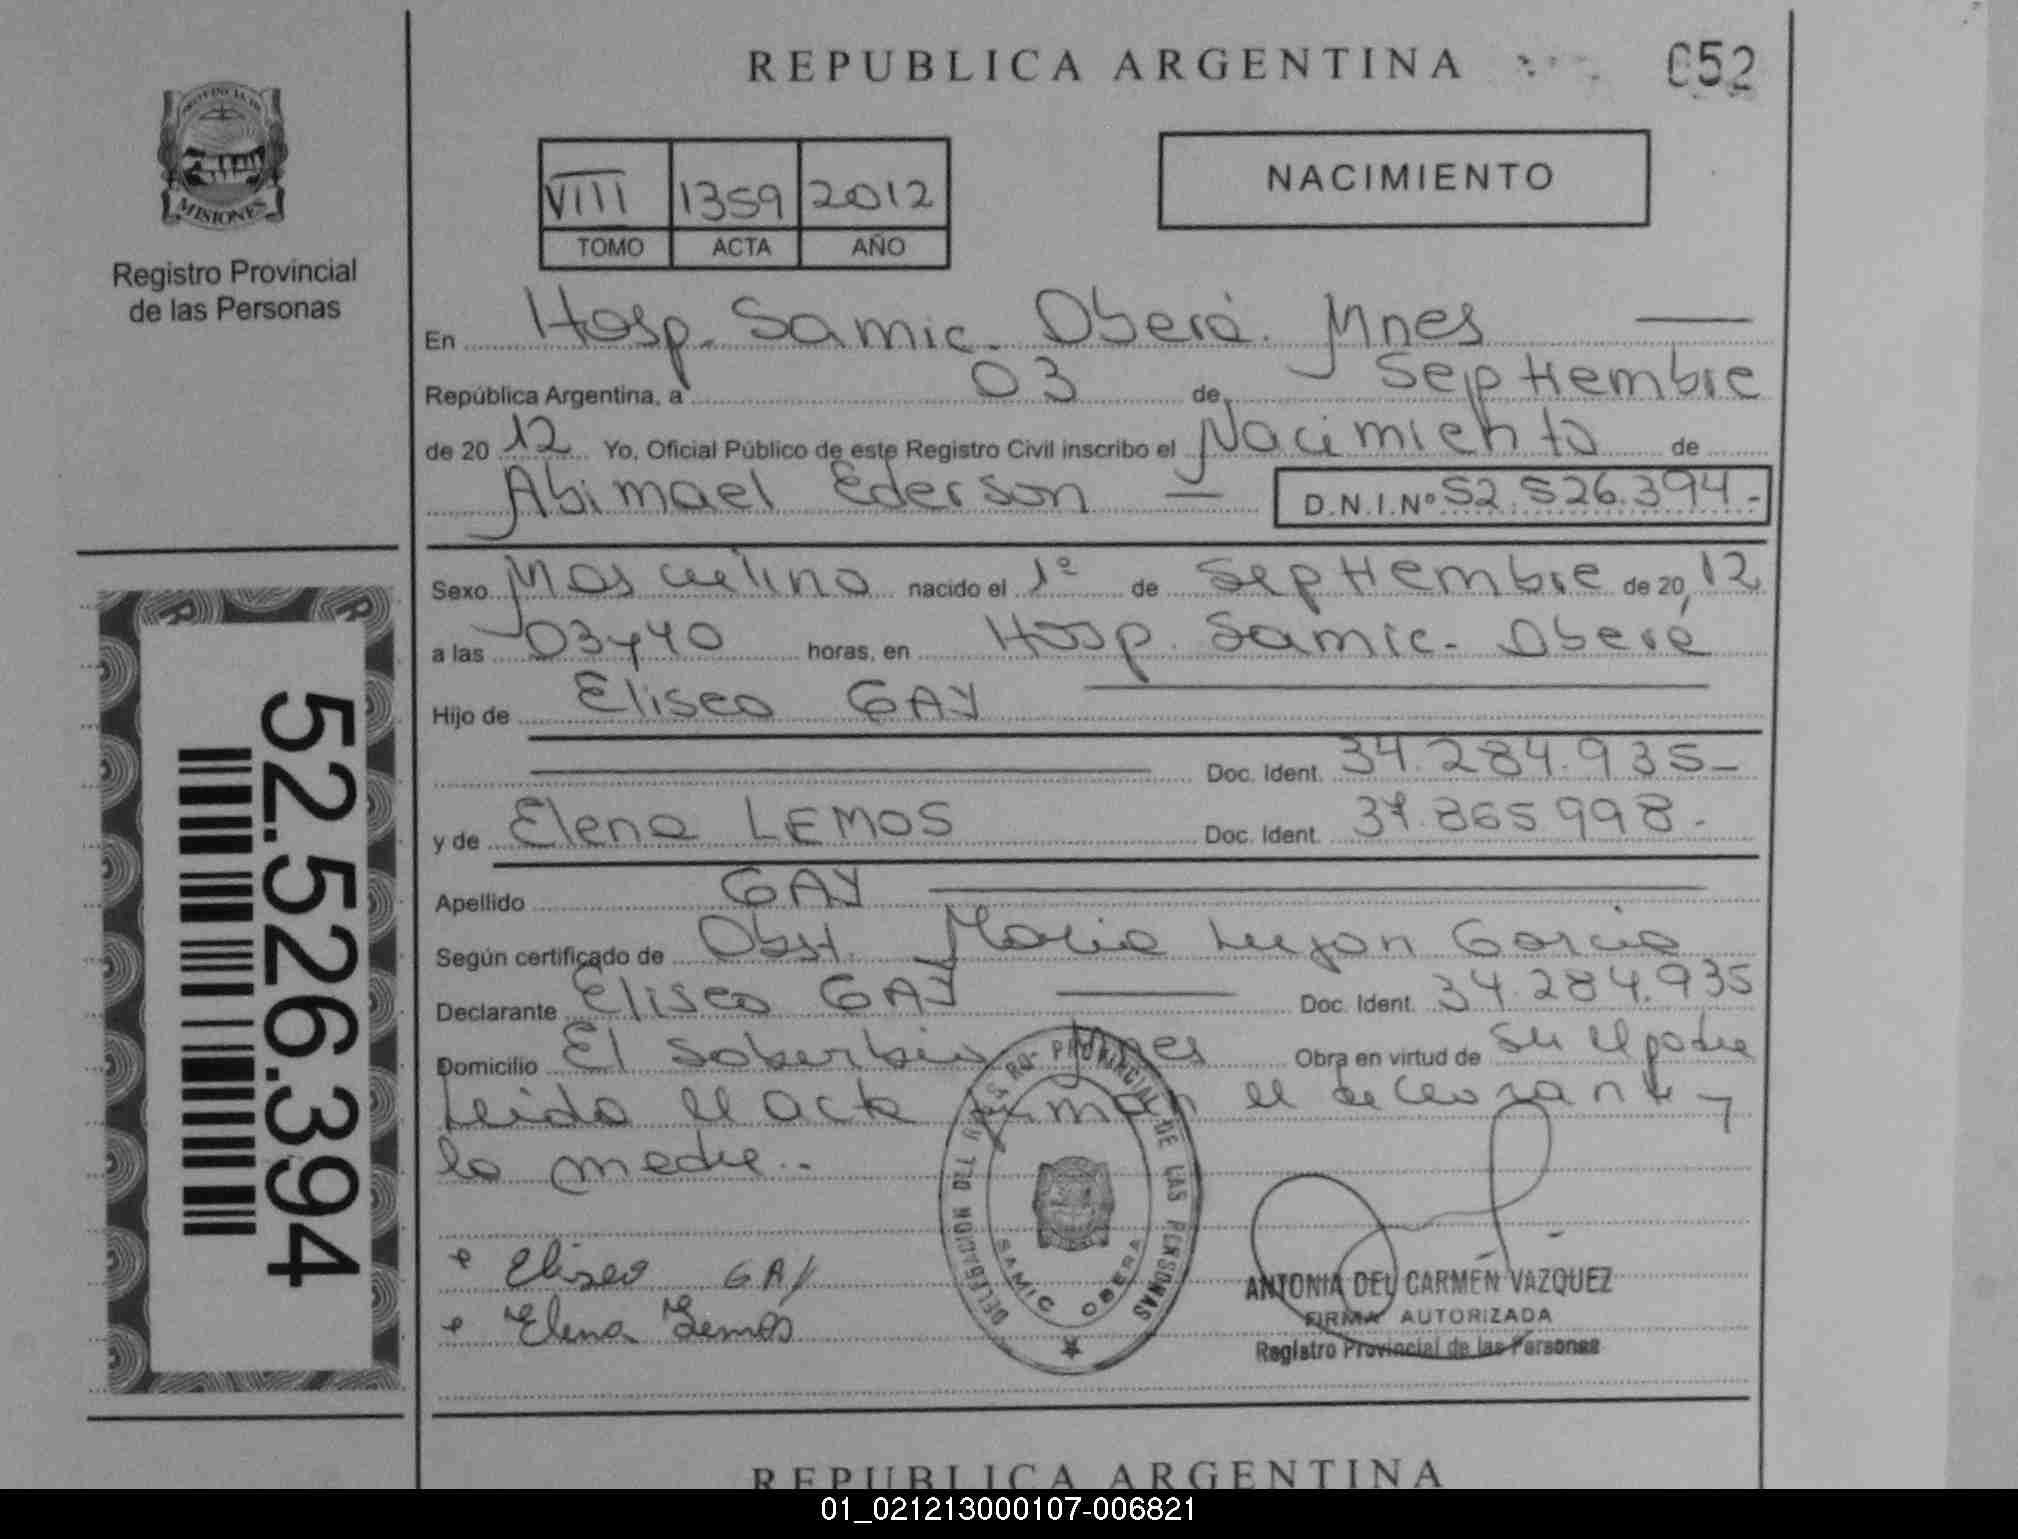 REPUBLICA ARGENTINA
052
PROVINCIA DE
MISIONES
Registro Provincial
de las Personas
VIII 1359 2012
TOMO ACTA AÑO
NACIMIENTO
En Hosp. Samic. Oberá. Mnes
República Argentina, a 03 de Septiembre
de 20 12 Yo, Oficial Público de este Registro Civil inscribo el Nacimiento de
Abimael Ederson — D.N.I.Nº 52.526.394.-
Sexo Masculino nacido el 1º de Septiembre de 20 12
a las 03y40 horas, en Hosp. Samic. Oberá
Hijo de Eliseo GAY
Doc. Ident. 34.284.935-
y de Elena LEMOS Doc. Ident. 865 998.-
Apellido GAY
Según certificado de Obst. Maria Lujan Garcia
Declarante Eliseo GAY Doc. Ident. 34.284.935
Domicilio El Soberbio Mnes Obra en virtud de Ser el padre
Leida el acta firman el declarante y
la madre..
Eliseo GAY
Elena Lemos
DELEGACION DEL REGISTRO PROVINCIAL DE LAS PERSONAS
SAMIC OBERA
ANTONIA DEL CARMEN VAZQUEZ
FIRMA AUTORIZADA
Registro Provincial de las Personas
52.526.394
REPUBLICA ARGENTINA
01_021213000107-006821